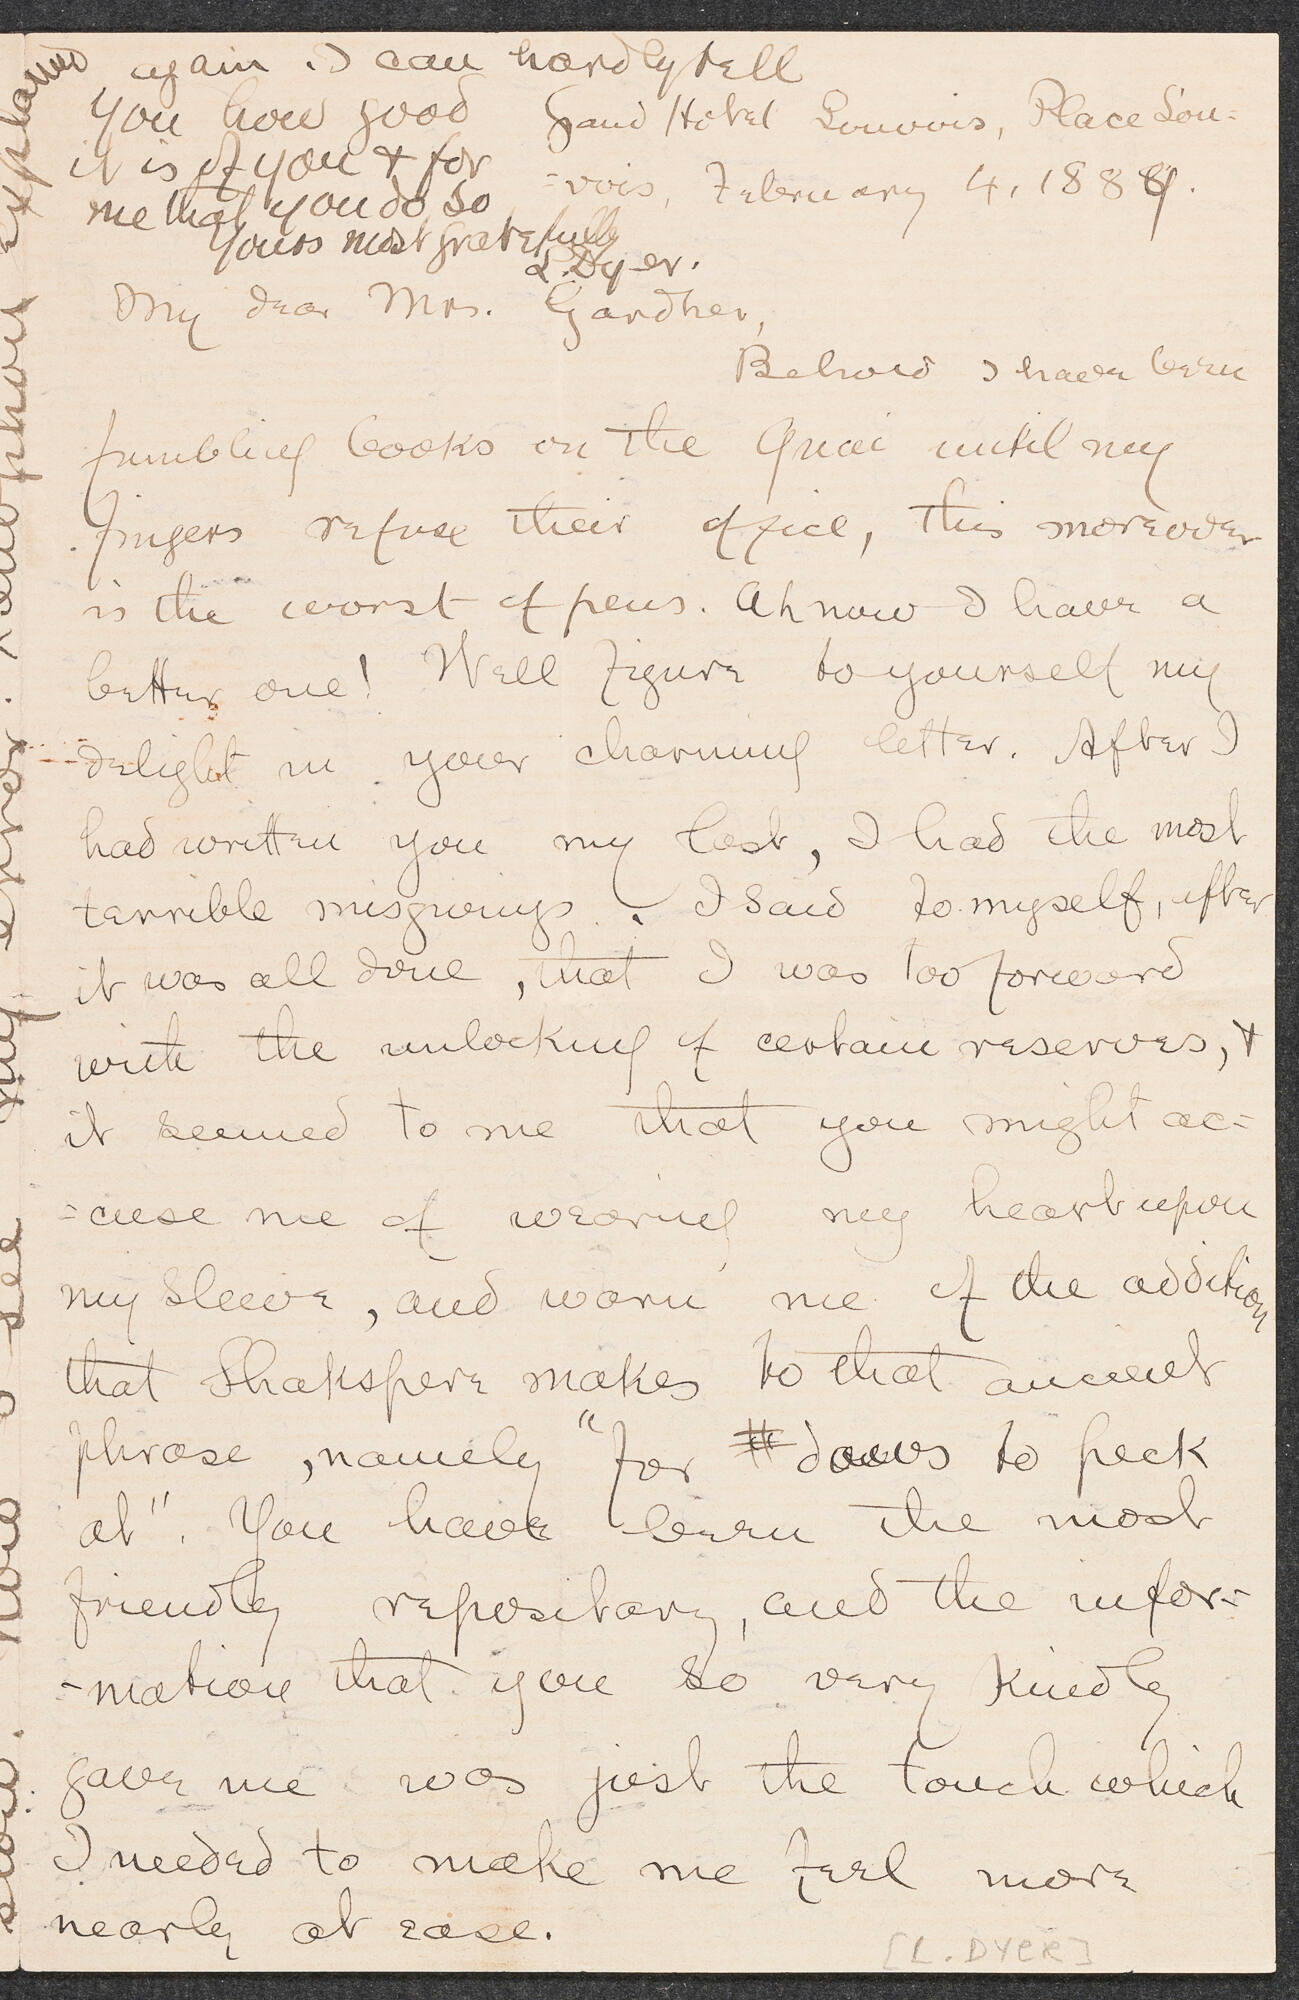 again. I can hardly tell
you how good
it is of you & for
me that you do so
Yours most gratefully
L. Dyer.
Grand Hotel Louvois, Place Lou=
=vois, February 4, 1889.
My dear Mrs. Gardner,
Behold I have been
fumbling books on the Quai until my
fingers refuse their office, this moreover
is the worst of pens. Ah now I have a
better one! Well figure to yourself my
delight in your charming letter. After I
had written you my last, I had the most
terrible misgivings. I said to myself, after
it was all done, that I was too forward
with the unlocking of certain reserves, &
it seemed to me that you might ac=
=cuse me of wearing my heart upon
my sleeve, and warn me of the addition
that Shakspere makes to that ancient
phrase, namely "for daws to peck
at". You have been the most
friendly repository, and the infor=
-mation that you so very kindly
gave me was just the touch which
I needed to make me feel more
nearly at ease.
[L. DYER]
now I see my error. Xenophon explained